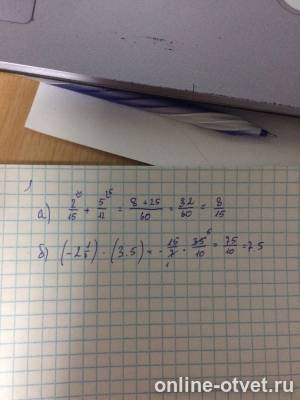 1
а) 2/15 + 5/12 = 8+25/60 = 32/60 = 8/15
б) (-2 1/7) · (3.5) = - 15/7 · 35/10 = 75/10 = 7.5
online-otvet.ru